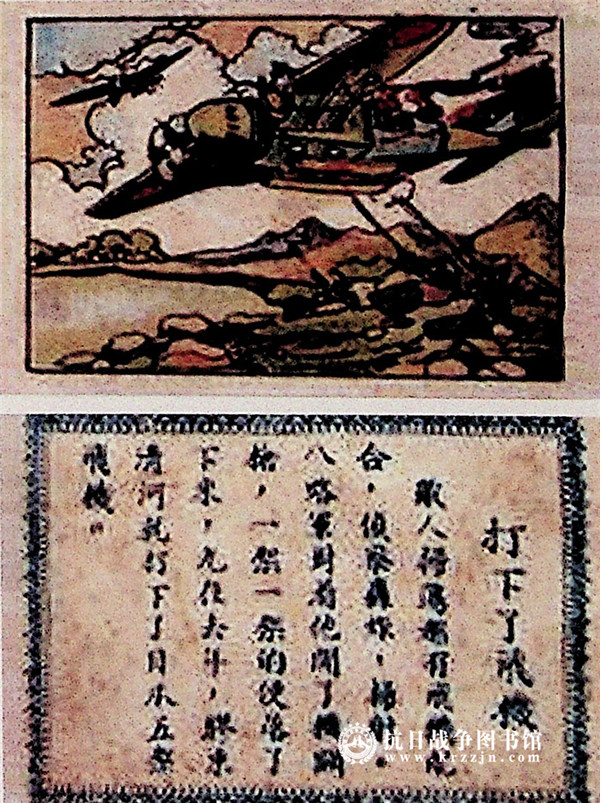 打下了飛機
敵人有飛機
合，偵察轟炸，掃
八路軍對着他開了機關
槍，一架一架的便落了
下來，光在去年，膠東
清河就打下了日本五架
飛機。
抗日战争图书馆
www.krzzjn.com